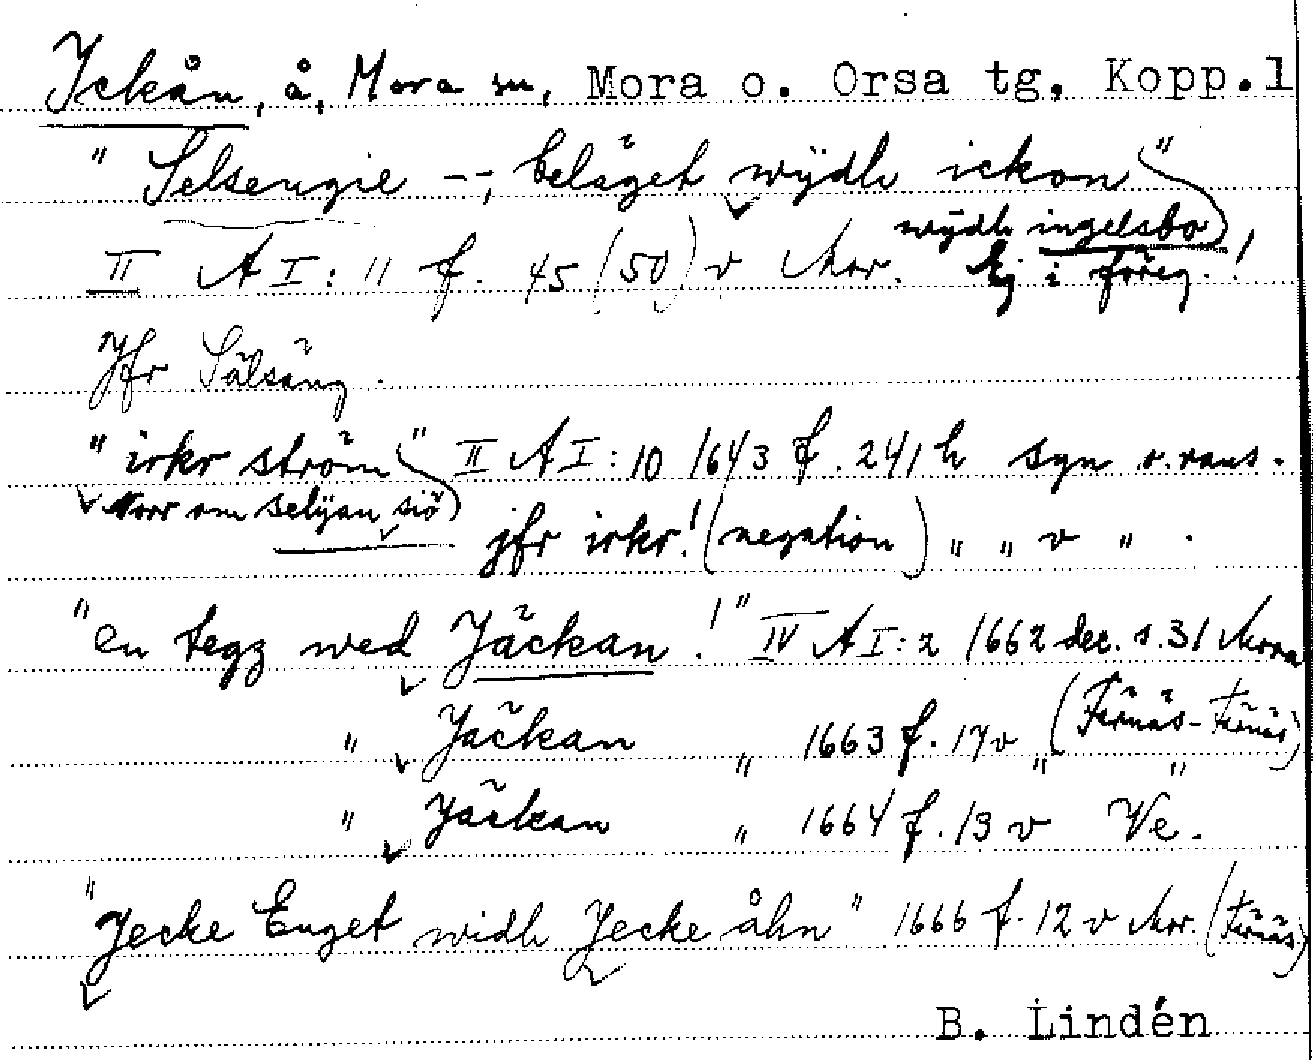 Ickån, å, Mora sn, Mora o. Orsa tg. Kopp.l
" Selsengie --, beläget wÿdh ickon "
wÿdh ingelsbo
II A I: 11 f. 45 (50) v Mor. Ej i föreg. !
Jfr Sälsäng.
" irkr ström " II A I: 10 1643 f. 241 h syn o. rans.
Norr om selÿan siö
jfr irkr! (negation) " " v " .
"en tegz wed Jäckan ! " IV A I: 2 1662 dec. s. 31 Mora
" Jäckan " 1663 f. 17 v (Färnäs - Färnäs)
" Jäckan " 1664 f. 13 v " Ve. "
"Jecke Enget widh Jecke åhn " 1666 f. 12 v Mor. (Färnäs)
B. Lindén